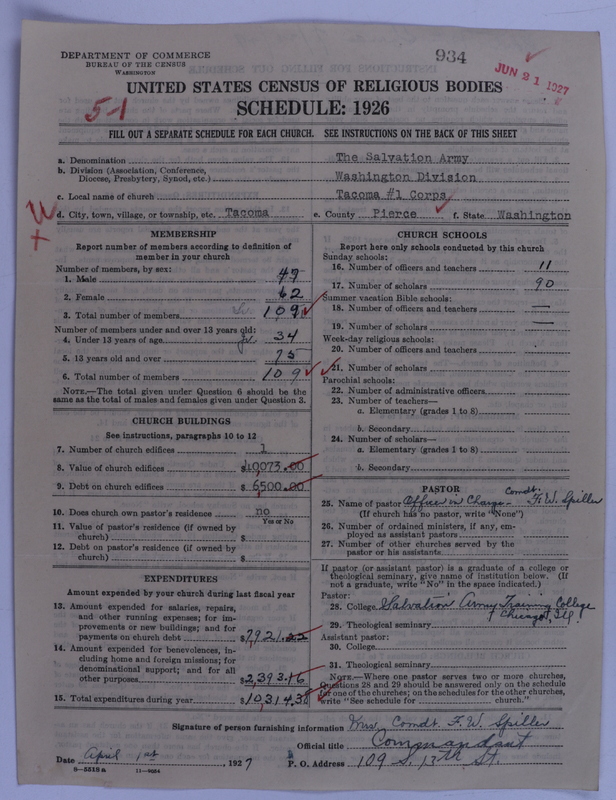 934
JUN 21 1927
DEPARTMENT OF COMMERCE
BUREAU OF THE CENSUS
WASHINGTON
UNITED STATES CENSUS OF RELIGIOUS BODIES
51
SCHEDULE: 1926
FILL OUT A SEPARATE SCHEDULE FOR EACH CHURCH. SEE INSTRUCTIONS ON THE BACK OF THIS SHEET
a. Denomination The Salvation Army
b. Division (Association, Conference,
Diocese, Presbytery, Synod, etc.) Washington Division
c. Local name of church Tacoma #1 Corps
d. City, town, village, or township, etc. Tacoma e. County Pierce f. State Washington
MEMBERSHIP
Report number of members according to definition of
member in your church
Number of members, by sex:
1. Male 47
2. Female 62
3. Total number of members 109
Number of members under and over 13 years old:
4. Under 13 years of age Jr. 34
5. 13 years old and over 75
6. Total number of members 109
NOTE.—The total given under Question 6 should be the
same as the total of males and females given under Question 3.
CHURCH BUILDINGS
See instructions, paragraphs 10 to 12
7. Number of church edifices 1
8. Value of church edifices $40073.00
9. Debt on church edifices $6500.00
10. Does church own pastor's residence no
Yes or No
11. Value of pastor's residence (if owned by
church) $
12. Debt on pastor's residence (if owned by
church) $
EXPENDITURES
Amount expended by your church during last fiscal year
13. Amount expended for salaries, repairs,
and other running expenses; for im-
provements or new buildings; and for
payments on church debt $7921.22
14. Amount expended for benevolences, in-
cluding home and foreign missions; for
denominational support; and for all
other purposes $2,393.16
15. Total expenditures during year $10,314.38
CHURCH SCHOOLS
Report here only schools conducted by this church
Sunday schools:
16. Number of officers and teachers 11
17. Number of scholars 90
Summer vacation Bible schools:
18. Number of officers and teachers —
19. Number of scholars —
Week-day religious schools:
20. Number of officers and teachers
21. Number of scholars
Parochial schools:
22. Number of administrative officers
23. Number of teachers—
a. Elementary (grades 1 to 8)
b. Secondary
24. Number of scholars—
a. Elementary (grades 1 to 8)
b. Secondary
PASTOR
25. Name of pastor Officer in Charge - Comdt. F. W. Spiller
(If church has no pastor, write "None")
26. Number of ordained ministers, if any, em-
ployed as assistant pastors
27. Number of other churches served by the
pastor or his assistants
If pastor (or assistant pastor) is a graduate of a college or
theological seminary, give name of institution below. (If
not a graduate, write "No" in the space indicated.)
Pastor:
28. College Salvation Army Training College
Chicago, Ill.
29. Theological seminary
Assistant pastor:
30. College
31. Theological seminary
NOTE.—Where one pastor serves two or more churches,
Questions 28 and 29 should be answered only on the schedule
for one of the churches; on the schedules for the other churches,
write "See schedule for church."
Signature of person furnishing information Mrs. Comdt. F. W. Spiller
Official title Commandant
Date April 1st, 1927 P. O. Address 109 S. 13th St.
8—5518a 11—9054